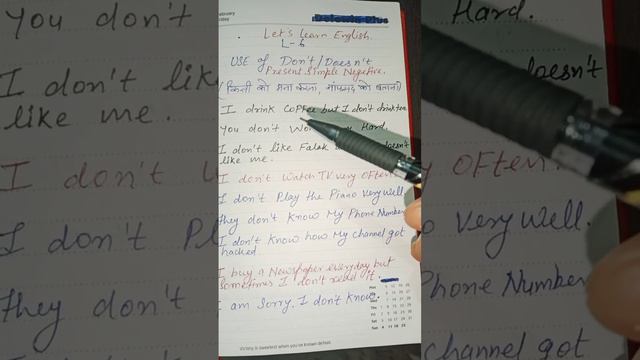 Let's learn English.
L-6
USE of Don't/Doesn't
Present Simple Negative.
(किसी को मना करना, नापसंद को बताना)
I drink Coffee but I don't drink tea
You don't Wor Hard.
I don't like Falak doesn't
like me.
I don't Watch TV very often.
I don't Play the Piano very well.
they don't know My Phone Number
I don't know how My channel got
hacked
I buy a Newspaper everyday but
Sometimes I don't read it.
I am Sorry. I don't know.
Victory is sweetest when you've known defeat.